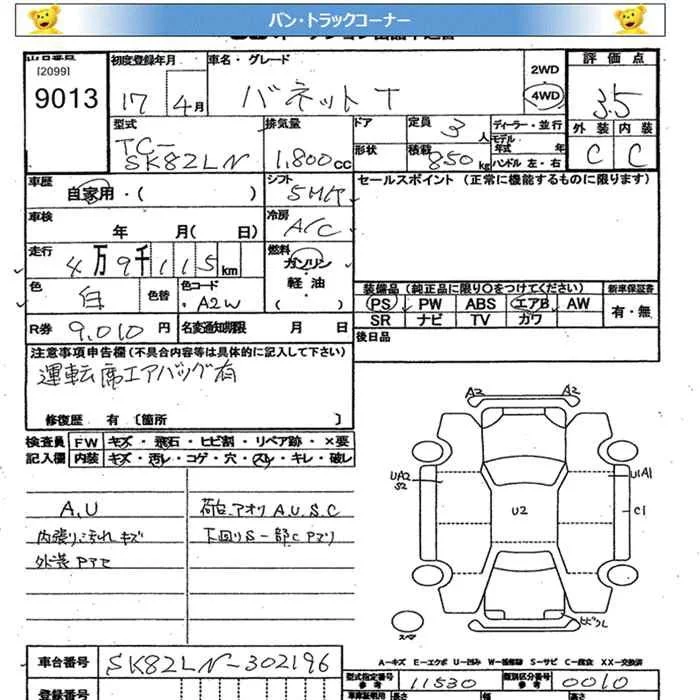 バン・トラックコーナー
[2099]
9013
初度登録年月
17年 4月
車名・グレード
バネットT
2WD
4WD
評価点
3.5
外装 内装
C C
型式
TC-
SK82LN
排気量
1,800cc
ドア
形状
定員 3人
積載 850kg
ディーラー・並行
モデル年式 年
ハンドル 左・右
車歴
自家用・( )
シフト
5MT
セールスポイント (正常に機能するものに限ります)
車検
年 月( 日)
冷房
A/C
走行
4万9千115km
燃料
ガソリン
軽油
( )
色
白
色替
色コード
A2W
装備品 (純正品に限り○をつけてください)
新車保証書
PS PW ABS エアB AW
SR ナビ TV カワ
有・無
R券 9,010円
名変通知期限 月 日
後日品
注意事項申告欄(不具合内容等は具体的に記入して下さい)
運転席エアバッグ有
修復歴 有 〔箇所 〕
検査員
記入欄
FW キズ・飛石・ヒビ割・リペア跡・×要
内装 キズ・汚レ・コゲ・穴・スレ・キレ・破レ
A,U
荷台アオリ A.U.S.C
内張り汚れキズ
下回りS一部Cアリ
A2
A2
UA2
S2
U1A1
U2
C1
スペア
A-キズ E-エクボ U-凹み S-サビ C-腐食 XX-交換済
車台番号 SK82LN-302196
登録番号
型式指定番号
参考
11530
類別区分番号
参考
0010
長さ
幅
高さ